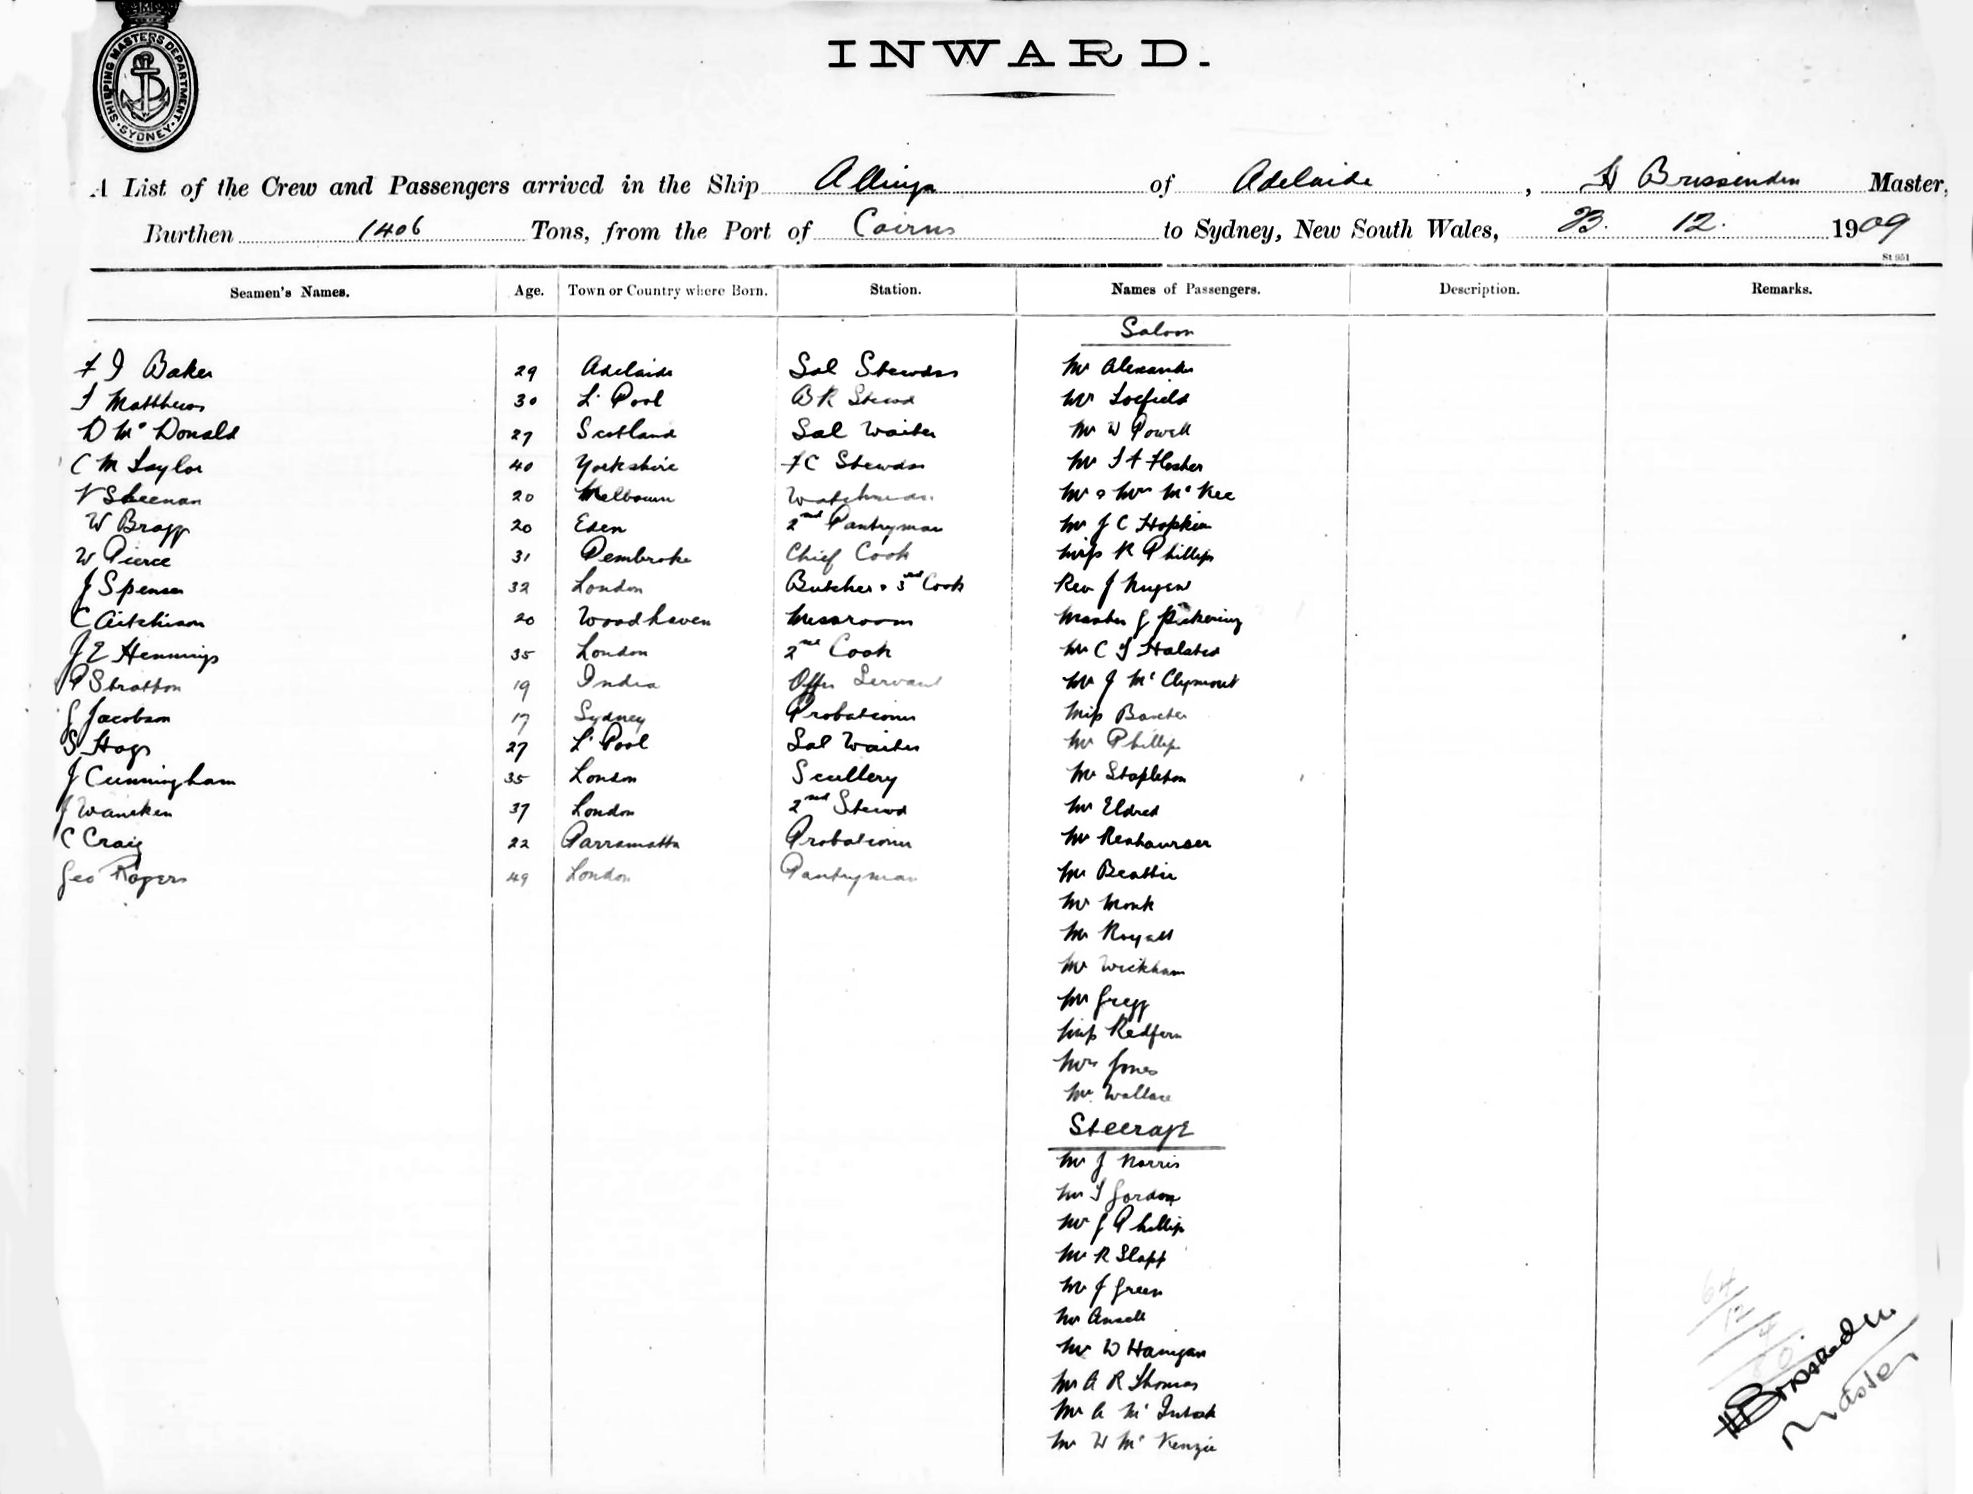 SHIPPING MASTERS DEPARTMENT
SYDNEY
INWARD.
A List of the Crew and Passengers arrived in the Ship Allinga of Adelaide, H Brissenden Master,
Burthen 1406 Tons, from the Port of Cairns to Sydney, New South Wales, 23. 12. 1909
St 951
Seamen's Names. Age. Town or Country where Born. Station. Names of Passengers. Description. Remarks.
Saloon
F J Baker 29 Adelaide Sal Stewdss Mr Alexander
T Matthews 30 L'Pool BR Stewd Mr
D McDonald 27 Scotland Sal Waiter Mr W Powell
C M Taylor 40 Yorkshire FC Stewdss Mr
V Sheenan 20 Melbourn Watchman Mr & Mrs McKee
W Bragg 20 Eden 2nd Pantryman Mr J C Hopkin
W Pierce 31 Pembroke Chief Cook Miss R Phillips
J Spenser 32 London Butcher & 3rd Cook Rev J Nugent
C Aitchison 20 Woodhaven Messroom Master J Pickering
J E Hennings 35 London 2nd Cook Mr C T Halsted
P Stratton 19 India Offrs Servant Mr J McClymont
J Jacobson 17 Sydney Probationer Miss Baxter
S Hogs 27 L'Pool Sal Waiter Mr Phillips
J Cunningham 35 London Scullery Mr Stapleton
J 37 London 2nd Stewd Mr Eldred
C Craig 22 Parramatta Probationer Mr
Geo Rogers 49 London Pantryman Mr Beattie
Mr Monk
Mr Royall
Mr Wickham
Mr Gregg
Miss Redfern
Mrs Jones
Mr Wallace
Steerage
Mr J Norris
Mr T Gordon
Mr J Phillip
Mr R Slapp
Mr J Green
Mr Ansell
Mr W Hanigan
Mr A R Thomas
Mr A McIntosh
Mr W McKenzie
64
12
4
80
H Brissenden
Master